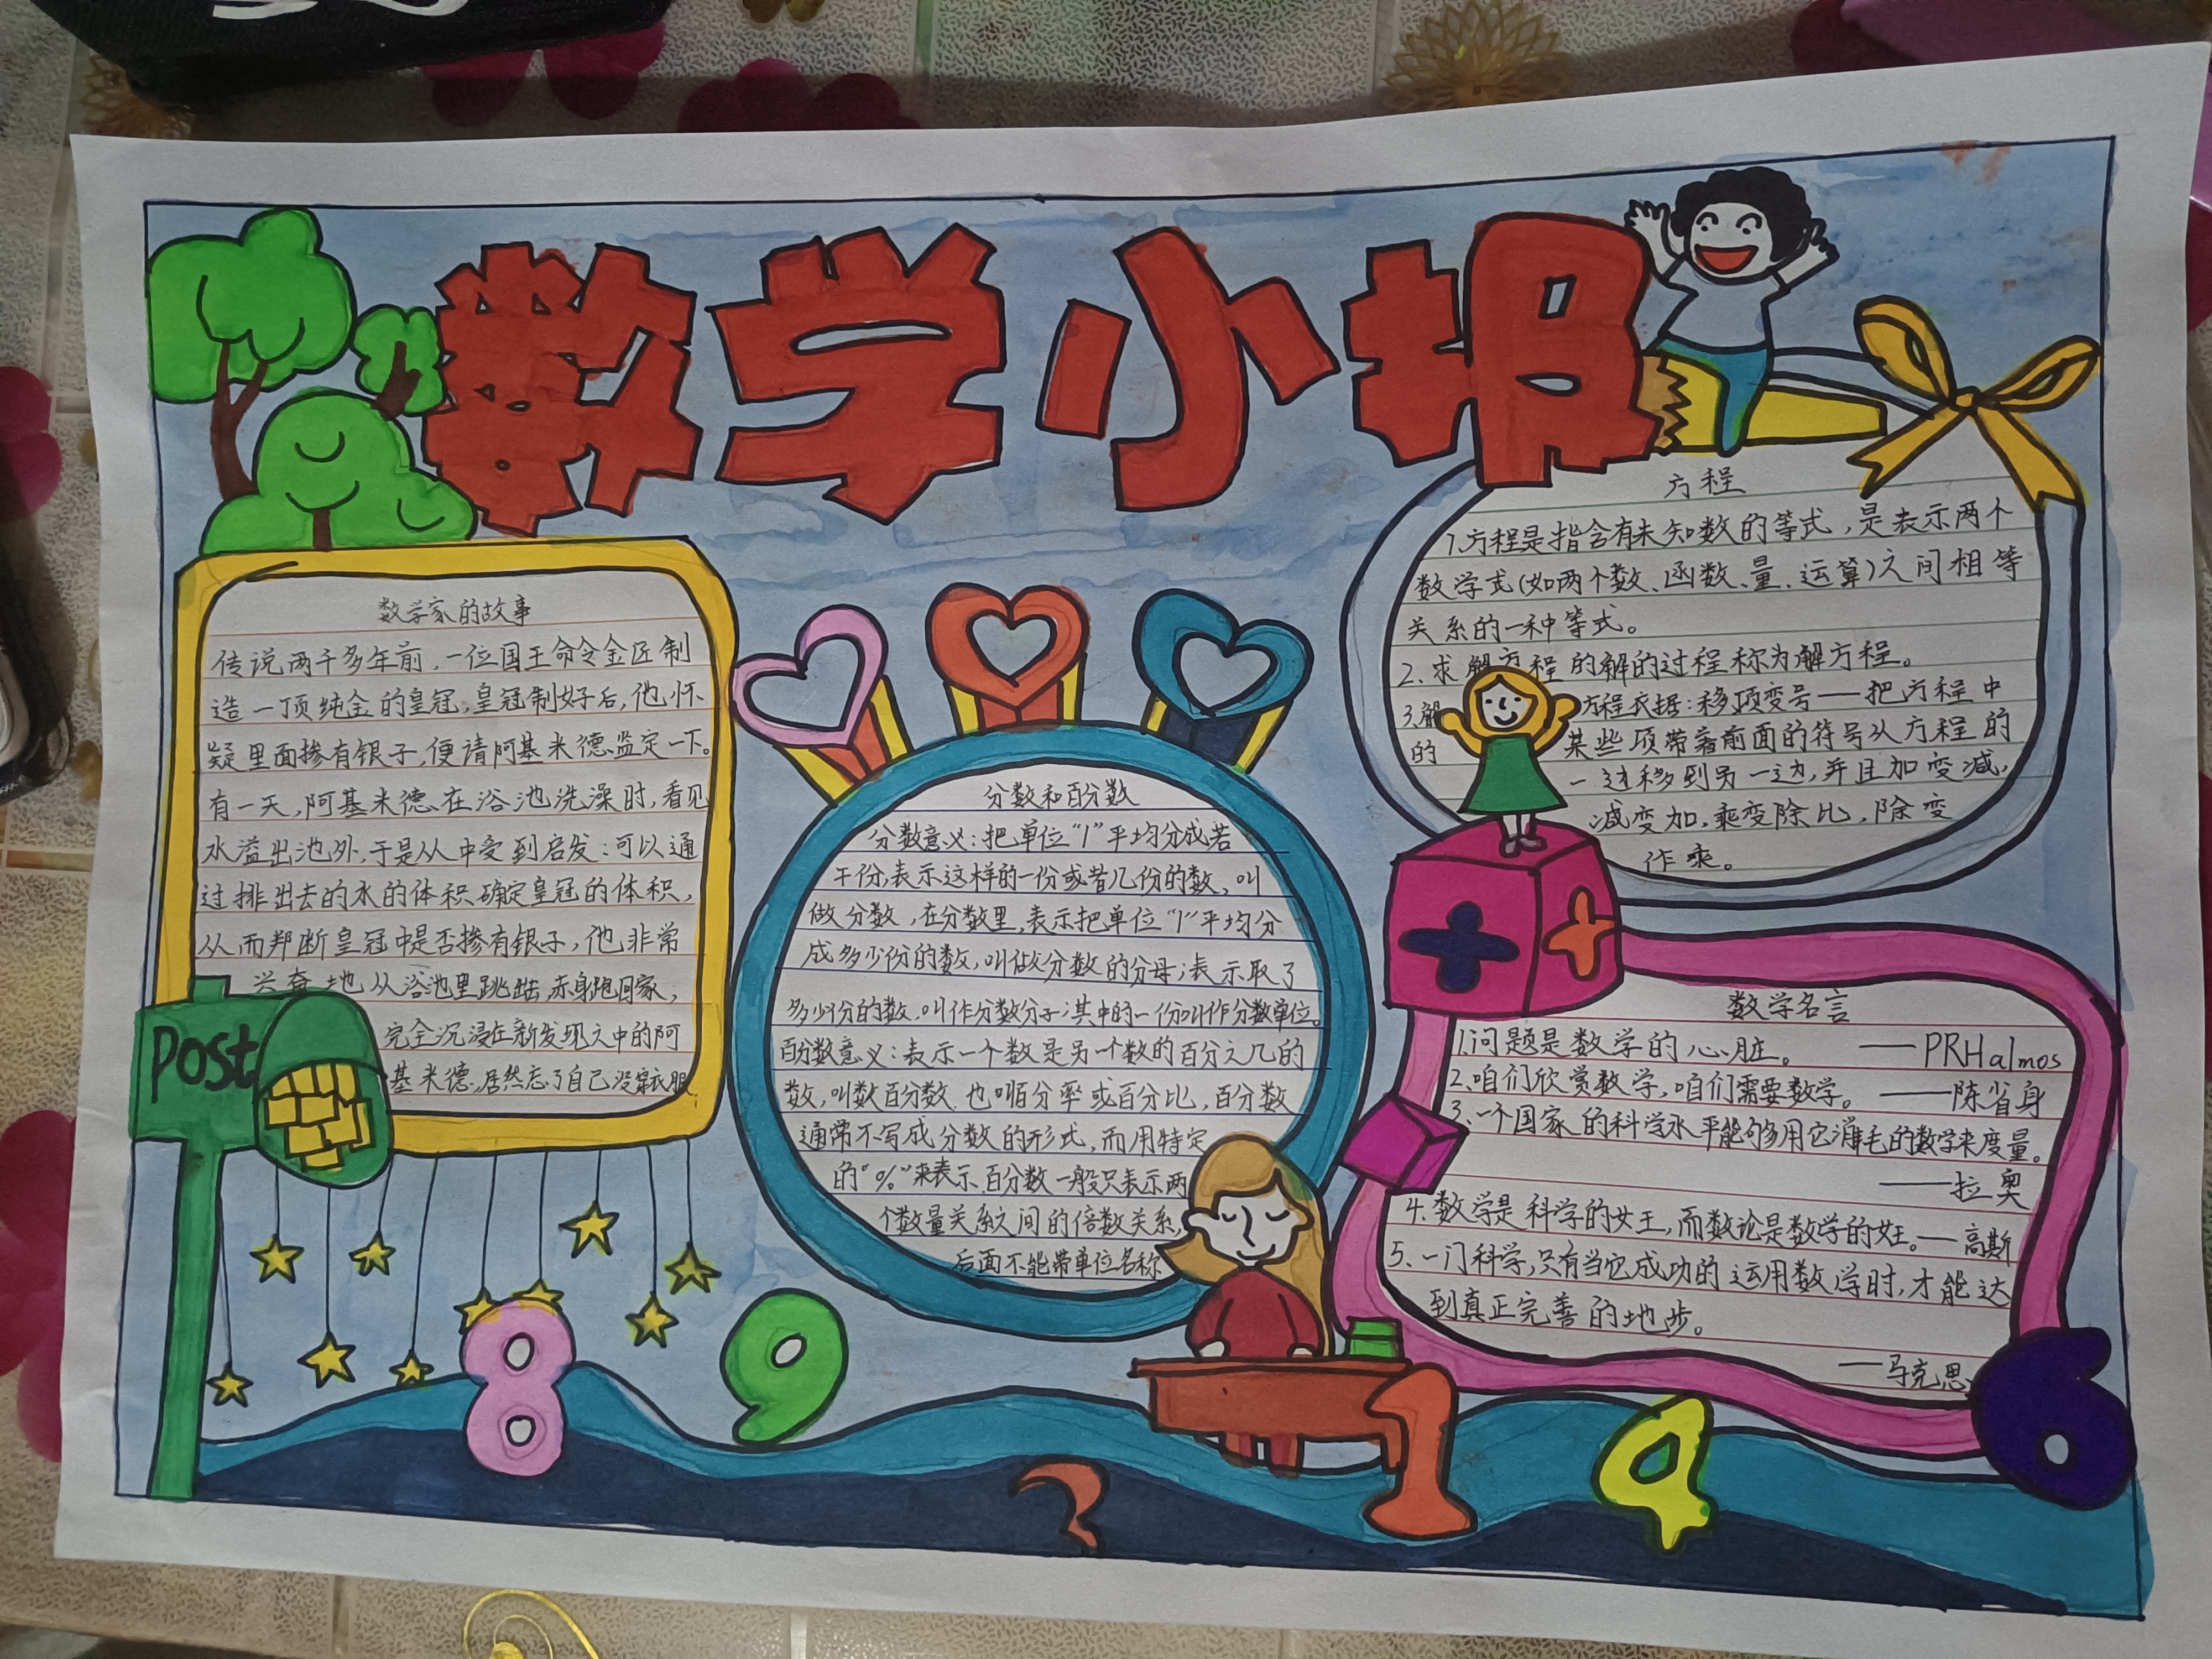 数学小报
数学家的故事
传说,两千多年前,一位国王命令金匠制
造一顶纯金的皇冠,皇冠制好后,他怀
疑里面掺有银子,便请阿基米德监定一下。
有一天,阿基米德在浴池洗澡时,看见
水溢出池外,于是从中受到启发:可以通
过排出去的水的体积确定皇冠的体积,
从而判断皇冠中是否掺有银子,他非常
兴奋地从浴池里跳出,赤身跑回家,
完全沉浸在新发现之中的阿
基米德,居然忘了自己没穿衣服
Post
分数和百分数
分数意义:把单位“1”平均分成若
干份,表示这样的一份或者几份的数,叫
做分数,在分数里,表示把单位“1”平均分
成多少份的数,叫做分数的分母;表示取了
多少份的数,叫作分数分子;其中的一份叫作分数单位。
百分数意义:表示一个数是另一个数的百分之几的
数,叫数百分数.也叫百分率或百分比,百分数
通常不写成分数的形式,而用特定
的“%”来表示.百分数一般只表示两
个数量关系之间的倍数关系,
后面不能带单位名称
方程
1.方程是指含有未知数的等式,是表示两个
数学式(如两个数、函数、量、运算)之间相等
关系的一种等式。
2.求解方程的解的过程称为解方程。
3.解方程依据:移项变号——把方程中
的某些项带着前面的符号从方程的
一边移到另一边,并且加变减,
减变加,乘变除比,除变
作乘。
数学名言
1.问题是数学的心脏。——PRHalmos
2.咱们欣赏数学,咱们需要数学。——陈省身
3.一个国家的科学水平能够用它消耗的数学来度量。
——拉奥
4.数学是科学的女王,而数论是数学的女王。—高斯
5.一门科学,只有当它成功的运用数学时,才能达
到真正完善的地步。
—马克思
8
9
1
4
6